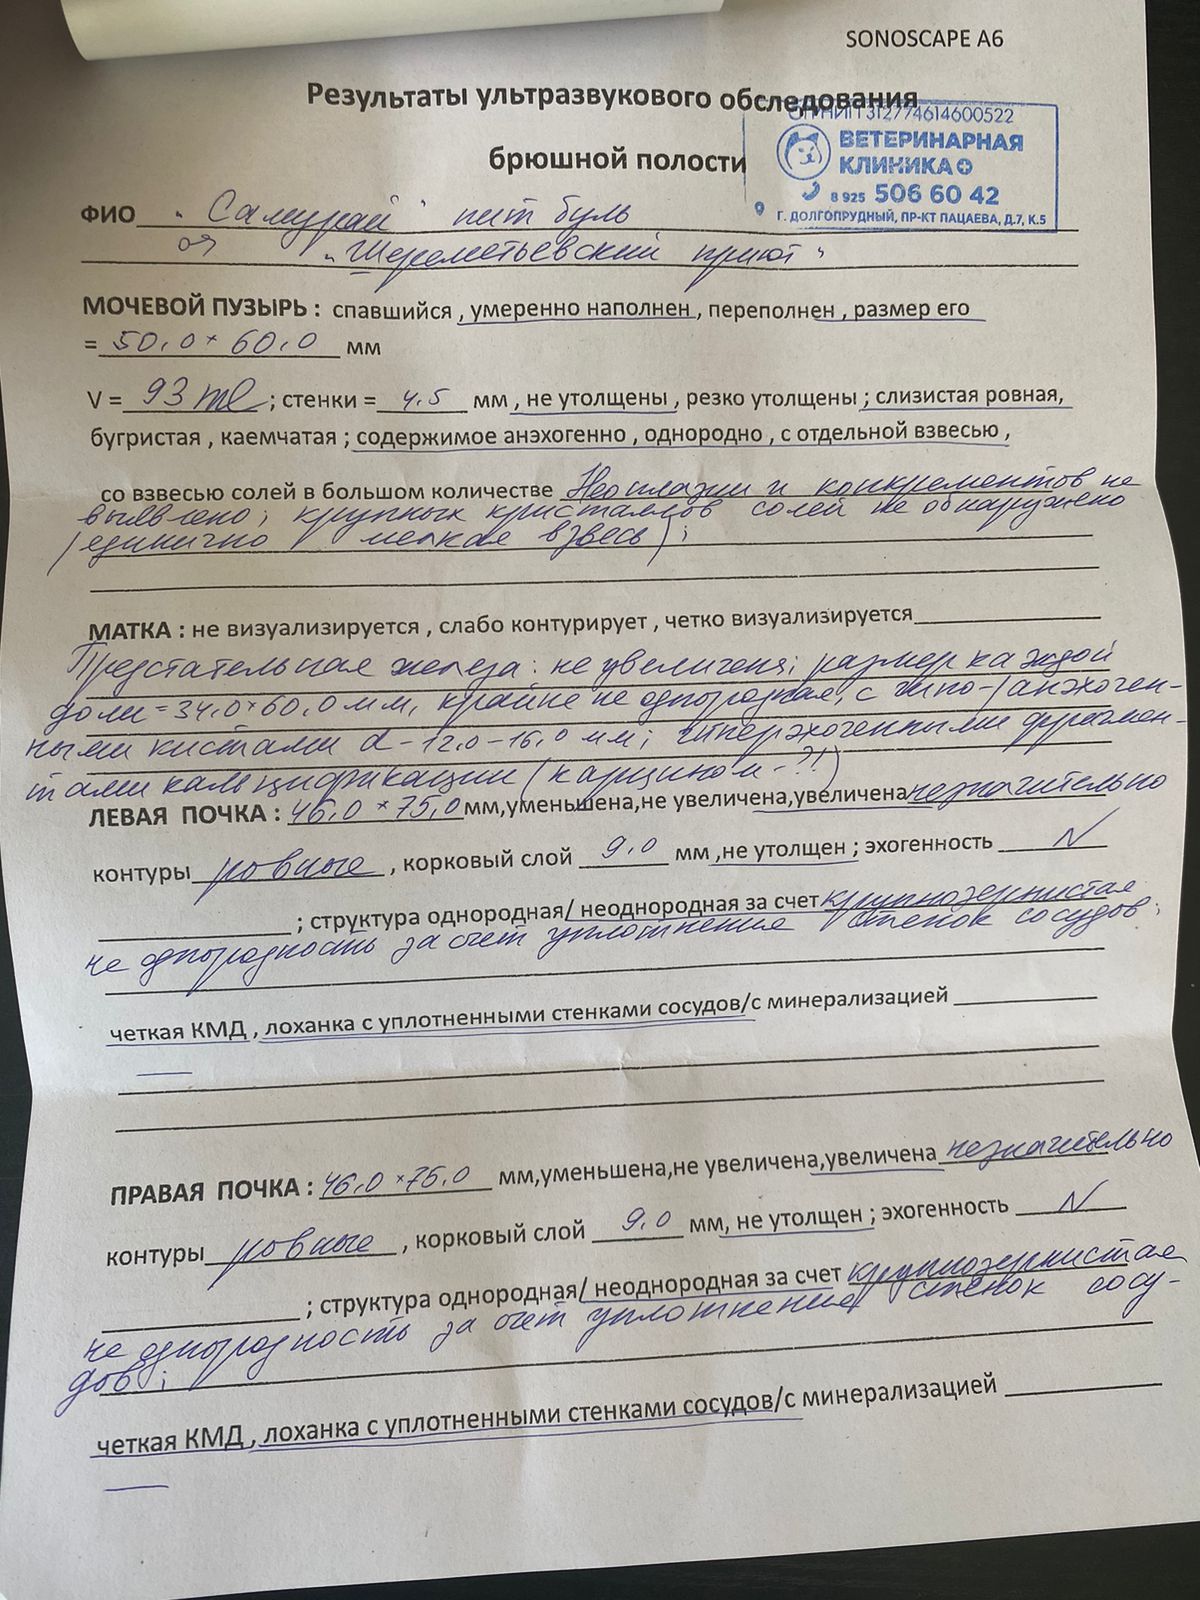 SONOSCAPE A6
Результаты ультразвукового обследования
брюшной полости
ОГРНИП 312774614600522
ВЕТЕРИНАРНАЯ
КЛИНИКА
8 925 506 60 42
Г. ДОЛГОПРУДНЫЙ, ПР-КТ ПАЦАЕВА, Д.7, К.5
ФИО "Самурай" пит буль
"Шереметьевский приют"
МОЧЕВОЙ ПУЗЫРЬ : спавшийся , умеренно наполнен , переполнен , размер его
= 50,0 × 60,0 мм
V = 93 ml ; стенки = 4.5 мм , не утолщены , резко утолщены ; слизистая ровная,
бугристая , каемчатая ; содержимое анэхогенно , однородно , с отдельной взвесью ,
со взвесью солей в большом количестве Неоплазии и конкрементов не
выявлено; крупных кристаллов солей не обнаружено
(единично мелкая взвесь);
МАТКА : не визуализируется , слабо контурирует , четко визуализируется
Предстательная железа: не увеличена; размер каждой
доли = 34,0 × 60,0 мм, крайне не однородная, с гипо-/анэхоген-
ными кистами d - 12,0 - 16,0 мм; гиперэхогенными фрагмен-
тами кальцификации (карцином - ?!)
ЛЕВАЯ ПОЧКА : 46,0 × 75,0 мм,уменьшена,не увеличена,увеличена незначительно
контуры ровные , корковый слой 9,0 мм ,не утолщен ; эхогенность N
; структура однородная/ неоднородная за счет крупнозернистая
не однородность за счет уплотнения стенок сосудов;
четкая КМД , лоханка с уплотненными стенками сосудов/с минерализацией
ПРАВАЯ ПОЧКА : 46,0 × 75,0 мм,уменьшена,не увеличена,увеличена незначительно
контуры ровные , корковый слой 9,0 мм, не утолщен ; эхогенность N
; структура однородная/ неоднородная за счет крупнозернистая
не однородность за счет уплотнения стенок сосу-
дов;
четкая КМД , лоханка с уплотненными стенками сосудов/с минерализацией